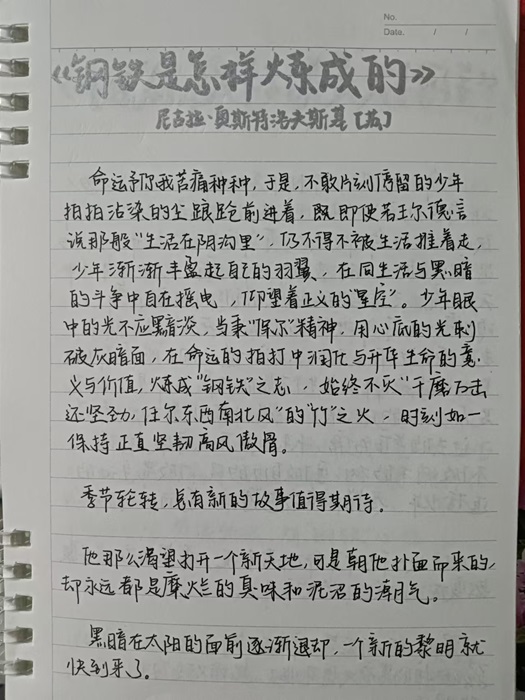 No.
Date. / /
《钢铁是怎样炼成的》
尼古拉·奥斯特洛夫斯基[苏]
命运予你我苦痛种种,于是,不敢片刻停留的少年
拍拍沾染的尘踉跄前进着,既即使若王尔德言
说那般"生活在阴沟里",仍不得不被生活推着走,
少年渐渐丰盈起自己的羽翼,在同生活与黑暗
的斗争中自在摇曳,仰望着正义的"星辰"。少年眼
中的光不应黯淡,当秉"保尔"精神,用心底的光刺
破灰暗面,在命运的拍打中润化与升华生命的意
义与价值,炼成"钢铁"之志,始终不灭"千磨万击
还坚劲,任尔东西南北风"的"竹"之火,时刻如一
保持正直坚韧高风傲骨。
季节轮转,总有新的故事值得期待。
他那么渴望打开一个新天地,可是朝他扑面而来的,
却永远都是糜烂的臭味和泥沼的潮气。
黑暗在太阳的面前逐渐退却,一个新的黎明就
快到来了。